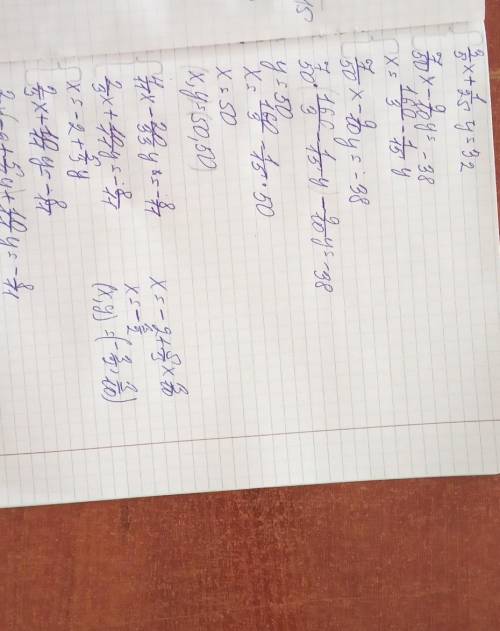 15
3/5 x + 1/25 y = 32
7/50 x - 9/10 y = -38
x = 160/3 - 1/15 y
7/50 x - 9/10 y = -38
7/50 · (160/3 - 1/15 y) - 9/10 y = -38
y = 50
x = 160/3 - 1/15 · 50
x = 50
(x,y)=(50,50)
4/11 x - 20/33 y = -8/11
2/3 x + 10/11 y = -8/11
x = -2 + 5/3 y
2/3 x + 10/11 y = -8/11
2/3 (-2 + 5/3 y) + 10/11 y = -8/11
x = -2 + 5/3 × 3/10
x = -3/2
(x,y) = (-3/2, 3/10)